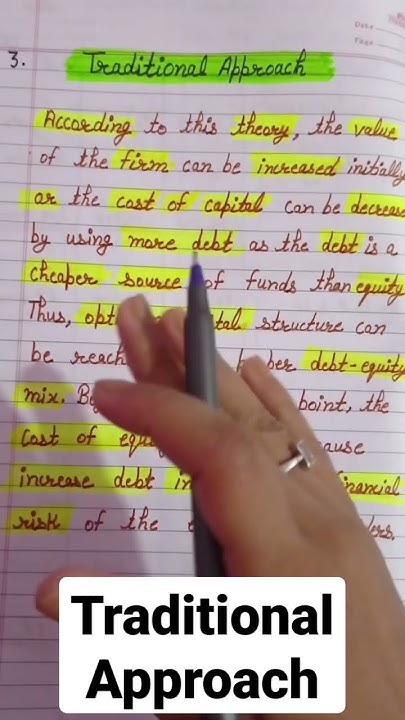 Date
Page
3. Traditional Approach
According to this theory, the value
of the firm can be increased initially
or the cost of capital can be decrease
by using more debt as the debt is a
cheaper source of funds than equity
Thus, structure can
be debt-equity
mix. point, the
Cost of
increase debt financial
risk of the
Traditional
Approach